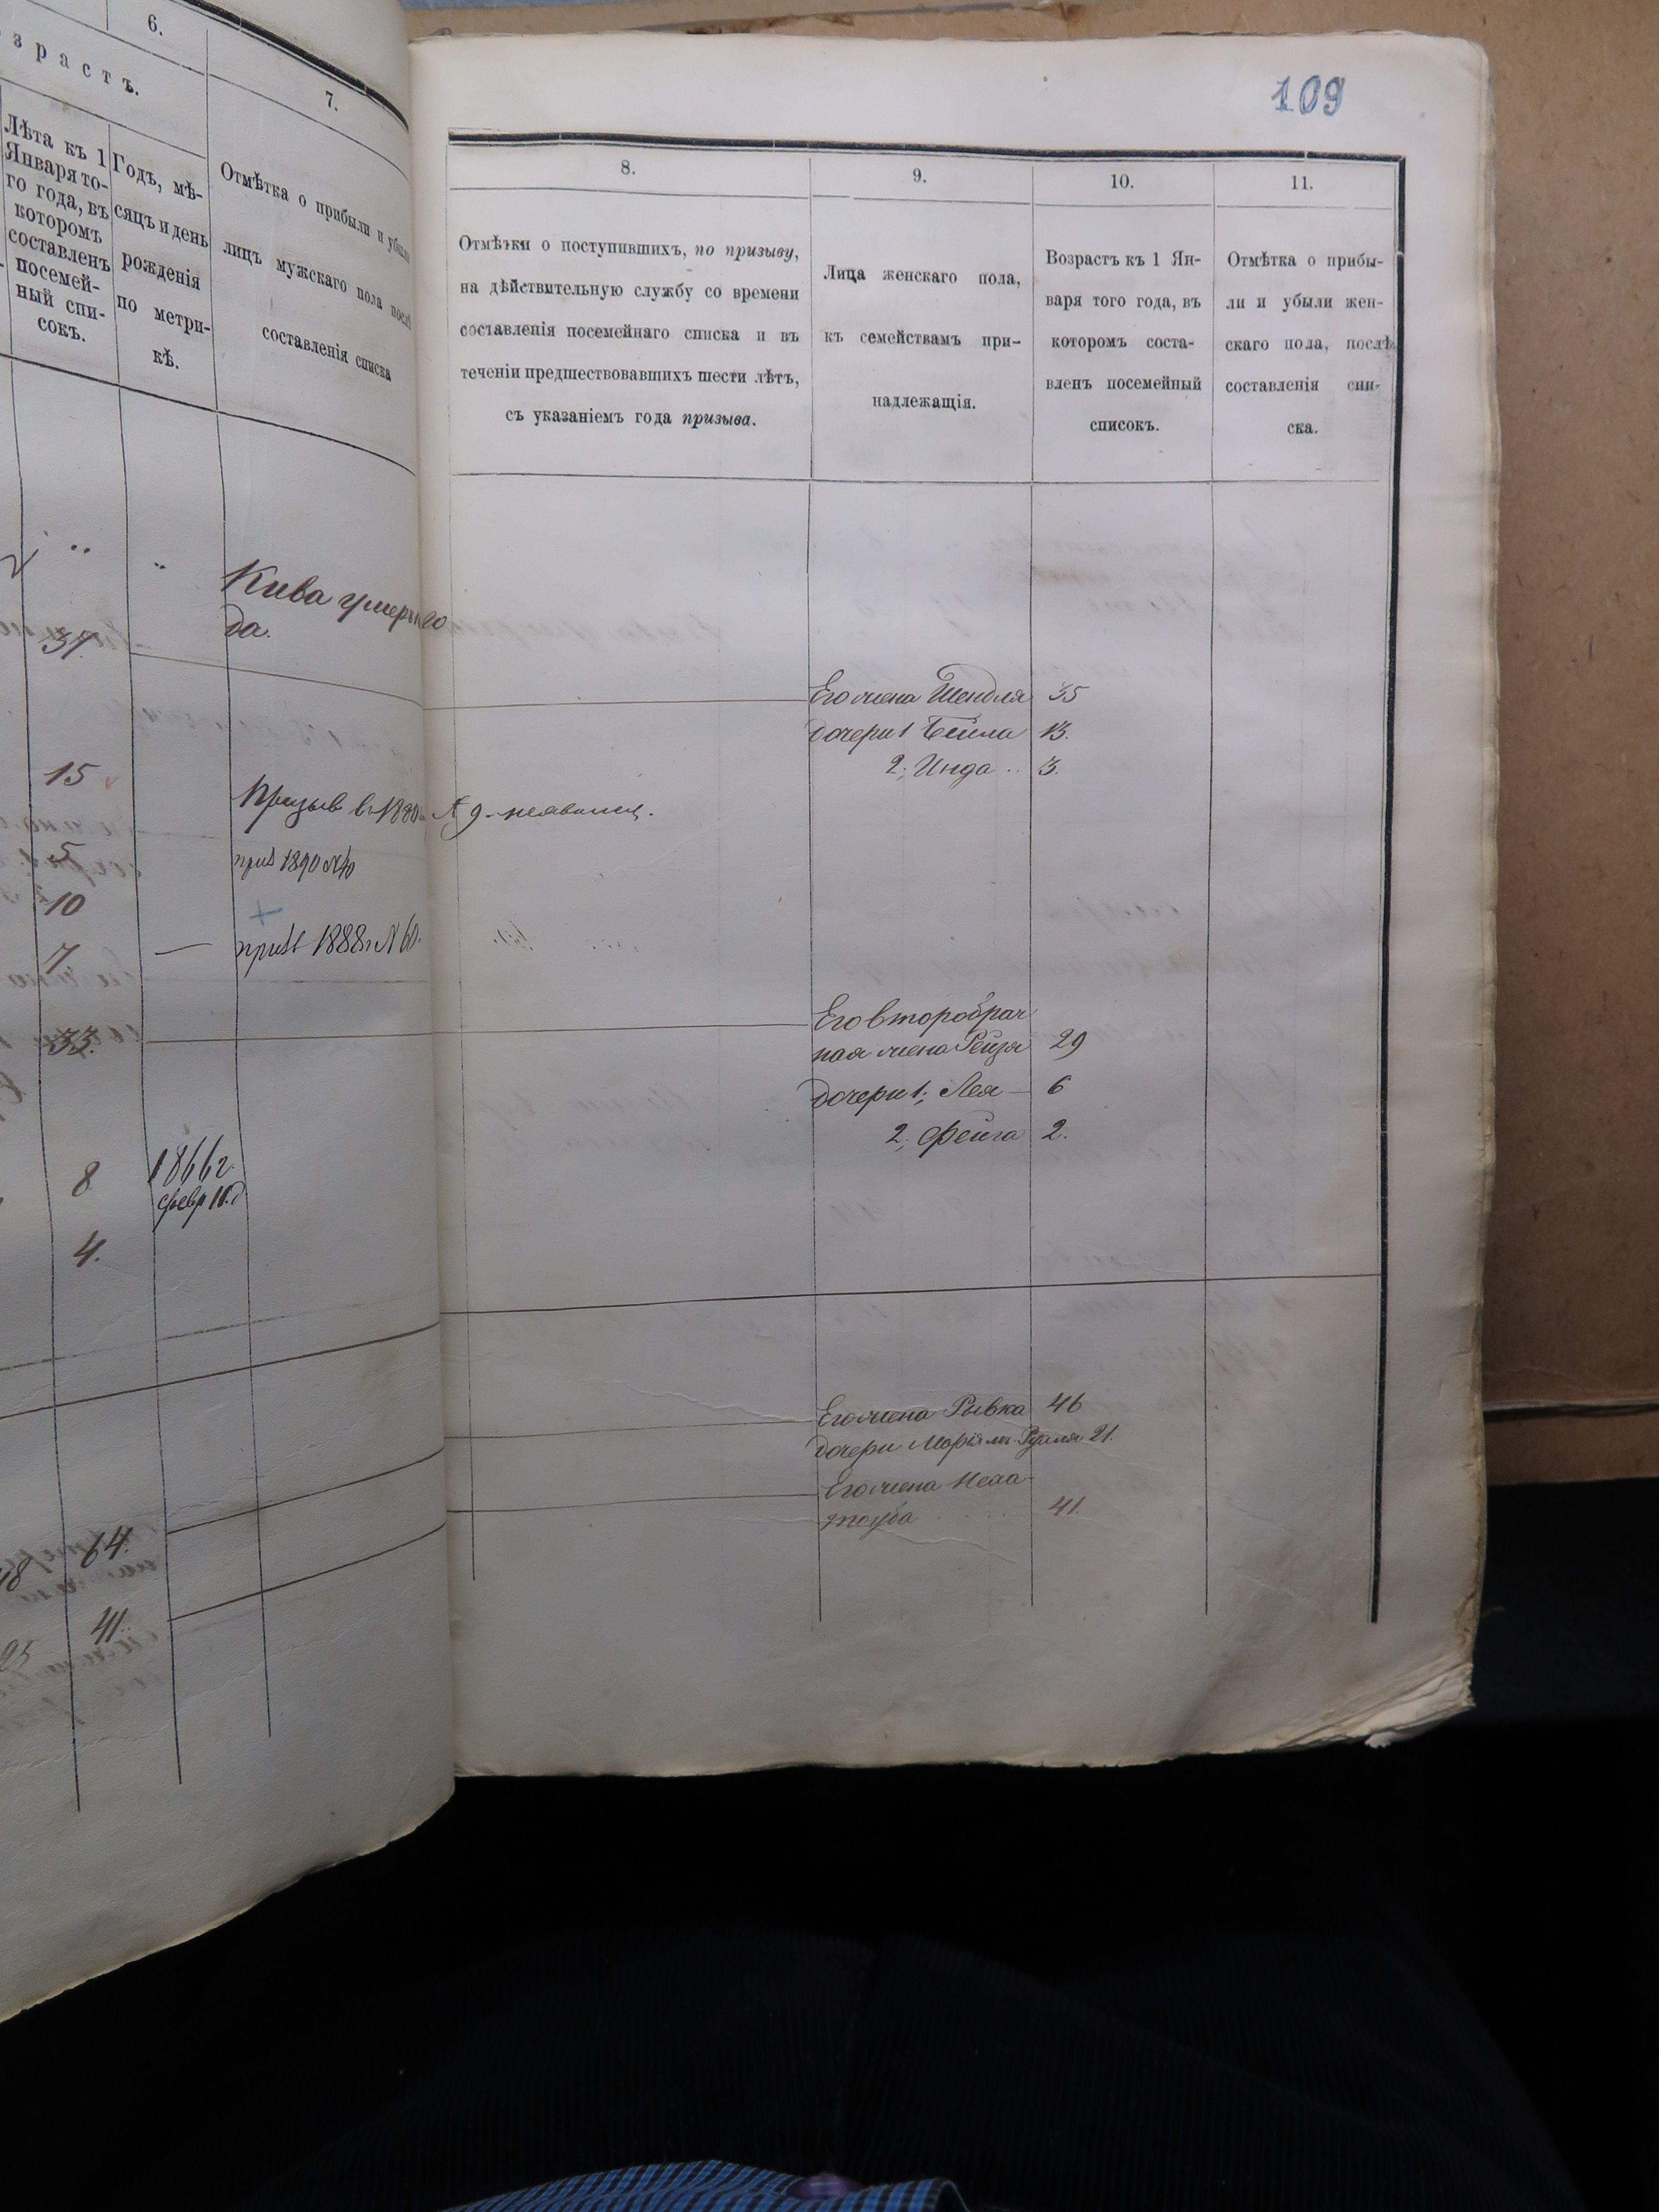 6.
7.
зрастъ.
Лѣта къ 1
Января то-
го года, въ
которомъ
составленъ
посемей-
ный спи-
сокъ.
Годъ, мѣ-
сяцъ и день
рожденія
по метри-
кѣ.
Отмѣтка о прибыли и убыли
лицъ мужскаго пола послѣ
составленія списка
37
Кива умеръ
да.
15
Призыв в 1890 № 9 неявился.
5
приз 1890 №
10
7.
приз 1888 г № 60.
33.
8
1866 г.
февр 10. д
4.
64.
41.
109
8.
9.
10.
11.
Отмѣтки о поступившихъ, по призыву,
на дѣйствительную службу со времени
составленія посемейнаго списка и въ
теченіи предшествовавшихъ шести лѣтъ,
съ указаніемъ года призыва.
Лица женскаго пола,
къ семействамъ при-
надлежащія.
Возрастъ къ 1 Ян-
варя того года, въ
которомъ соста-
вленъ посемейный
списокъ.
Отмѣтка о прибы-
ли и убыли жен-
скаго пола, послѣ
составленія спи-
ска.
Его жена Шендля 35
дочери 1 Бейла 13.
2; Инда .. 3.
Его второбрач
ная жена Рейзя 29
дочери 1; Лея — 6
2; Фейга 2.
Его жена Рывка 46
дочери Маріям 21.
Его жена Неха
тоуба .... 41.